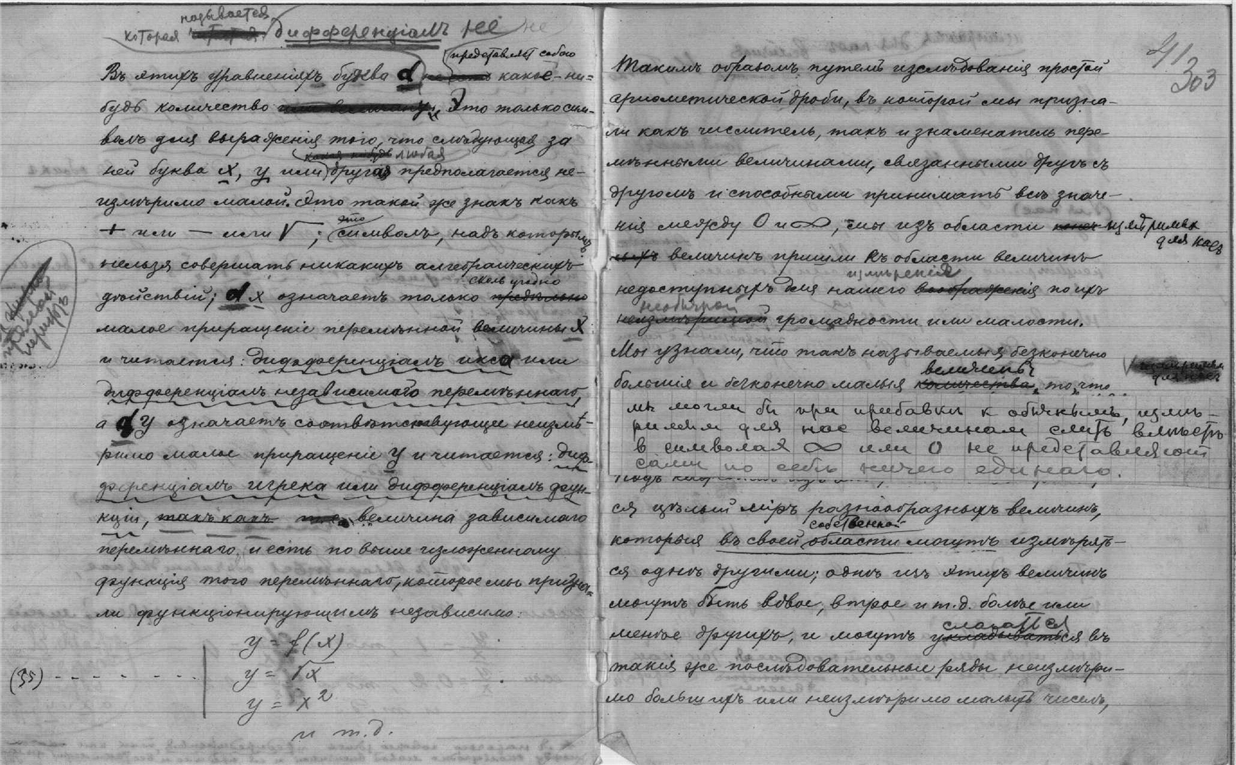 называется
которая дифференціаломъ не не
представляет собою
Въ этихъ уравненіяхъ буква d какое-ни-
будь количество Это только сим-
волъ для выраженія того, что слѣдующая за
какая нибудь любая
ней буква x, y или другая предполагается не-
измѣримо малой. Это такой же знак какъ
+ или — или √ ; это символъ, надъ которымъ
нельзя совершать никакихъ алгебраическихъ
сколь угодно
дѣйствій; d x означаетъ только предѣльно
малое приращеніе перемѣнной величины x
и читается: дифференціалъ икса или
дифференціалъ независимаго перемѣннаго,
а d y означаетъ соотвѣтствующее неизмѣ-
римо малое приращеніе y и читается: диф-
ференціалъ игрека или дифференціалъ функ-
ціи, такъ какъ величина зависимаго
перемѣннаго и есть по выше изложенному
функція того перемѣннаго, которое мы призна-
ли функціонирующимъ независимо:
y = f(x)
(35) - - - - - - - - y = √x
y = x²
и т.д.
41
303
Такимъ образомъ путемъ изслѣдованія простой
арифметической дроби, въ которой мы призна-
ли какъ числитель, такъ и знаменатель пере-
мѣнными величинами, связанными другъ съ
другомъ и способными принимать всѣ значе-
нія между 0 и ∞, мы изъ области измѣримых
для насъ
величинъ пришли къ области величинъ
измѣренія
недоступныхъ для нашего воображенія по ихъ
необычной
неизмѣримой громадности или малости.
Мы узнали, что такъ называемыя безконечно
величины
большія и безконечно малыя количества, то, что
мы могли бы при прибавки к обычным, изме-
римым для нас величинам слить вместе
в символах ∞ или 0 не представляют
сами по себе ничего единаго.
ся цѣлый міръ разнообразныхъ величинъ,
собственной
которыя въ своей области могутъ измѣрять-
ся однѣ другими; однѣ изъ этихъ величинъ
могутъ быть вдвое, втрое и т.д. болѣе или
слагаться
менѣе другихъ, и могутъ укладываться въ
такія же послѣдовательные ряды неизмѣри-
мо большихъ или неизмѣримо малыхъ чиселъ,